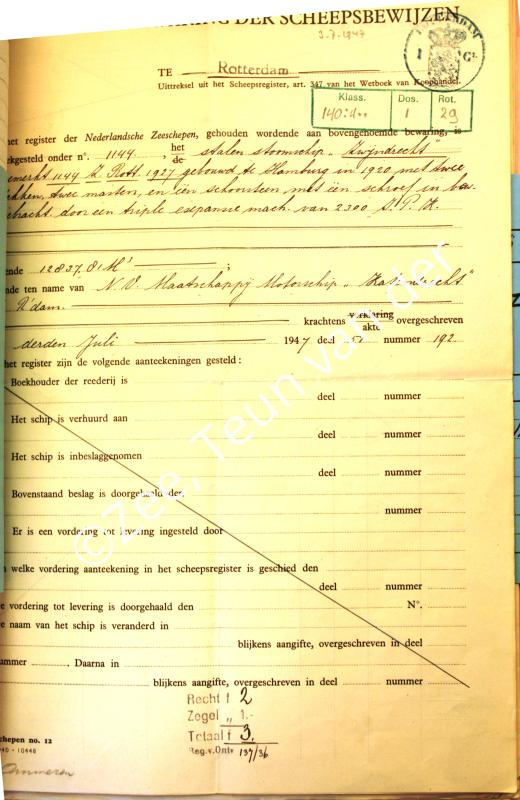 DER SCHEEPSBEWIJZEN
3-7-1947
ROTTERDAM
1 Gl.
TE Rotterdam
Uittreksel uit het Scheepsregister, art. 347 van het Wetboek van Koophandel.
Klass. Dos. Rot.
1 29
het register der Nederlandsche Zeeschepen, gehouden wordende aan bovengenoemde bewaring, is
gesteld onder n°. 1144, het de stalen stoomschip „Zwijndrecht"
gemerkt 1144 Z Rott 1927 gebouwd te Hamburg in 1920 met twee
dekken, twee masten, en één schoorsteen met één schroef in be-
bracht door een triple expansie mach. van 2300 I.P.K.
12837,81 M³
ten name van N.V. Maatschappij Motorschip „Katendrecht"
R'dam.
krachtens verklaring akte overgeschreven
derden Juli 1947 deel 51 nummer 192
het register zijn de volgende aanteekeningen gesteld :
Boekhouder der reederij is
deel nummer
Het schip is verhuurd aan
deel nummer
Het schip is inbeslaggenomen
deel nummer
Bovenstaand beslag is doorgehaald den
nummer
Er is een vordering tot levering ingesteld door
welke vordering aanteekening in het scheepsregister is geschied den
deel nummer
vordering tot levering is doorgehaald den N°.
naam van het schip is veranderd in
blijkens aangifte, overgeschreven in deel
nummer Daarna in
blijkens aangifte, overgeschreven in deel nummer
Recht f 2
Zegel „ 1.-
Totaal f 3.
Reg. v. Ontv 137/36
schepen no. 12
10448
©Zee, Teun van der